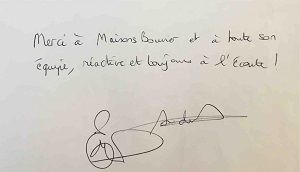 Merci à Maisons Bouvier et à toute son
équipe, réactive et toujours à l'Ecoute !